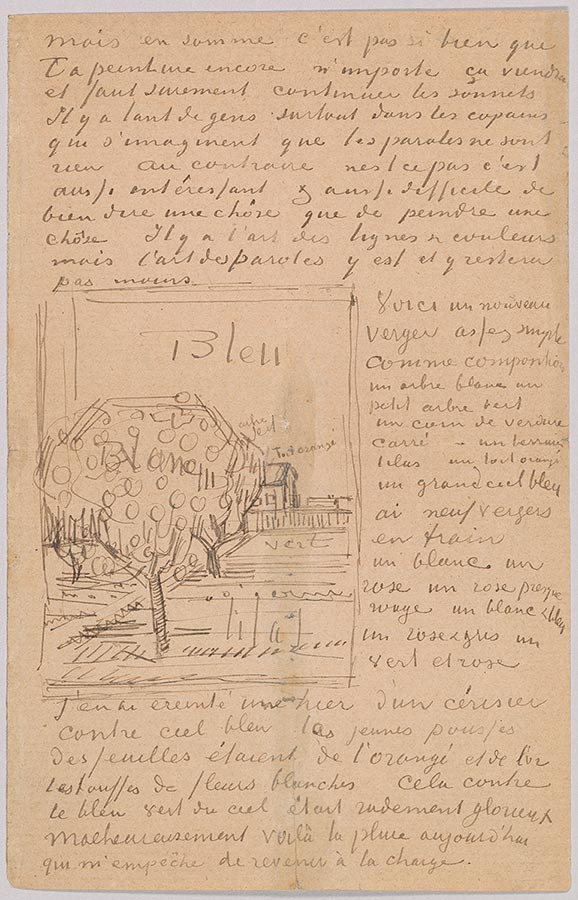 mais en somme c'est pas si bien que
Ta peinture encore n'importe ça viendra
et faut surement continuer les sonnets
Il y a tant de gens surtout dans les copains
qui s'imaginent que les paroles ne sont
rien au contraire n'est ce pas c'est
aussi intéressant & aussi difficile de
bien dire une chôse que de peindre une
chôse Il y a l'art des lignes & couleurs
mais l'art des paroles y est et y restera
pas moins.
Bleu
Blanc
arbre
vert
Toit orangé
vert
lilas
Voici un nouveau
verger assez simple
comme composition
un arbre blanc un
petit arbre vert
un coin de verdure
carré – un terrain
lilas un toit orangé
un grand ciel bleu
ai neuf vergers
en train
un blanc un
rose un rose presque
rouge un blanc & bleu
un rose & gris un
vert et rose
J'en ai éreinté un hier d'un cérisier
contre ciel bleu les jeunes pousses
des feuilles étaient de l'orangé et de l'or
les touffes de fleurs blanches cela contre
le bleu vert du ciel était rudement glorieux
Malheureusement voilà la pluie aujourd'hui
qui m'empêche de revenir à la charge.